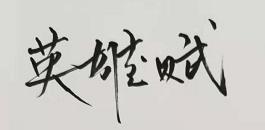 英雄赋